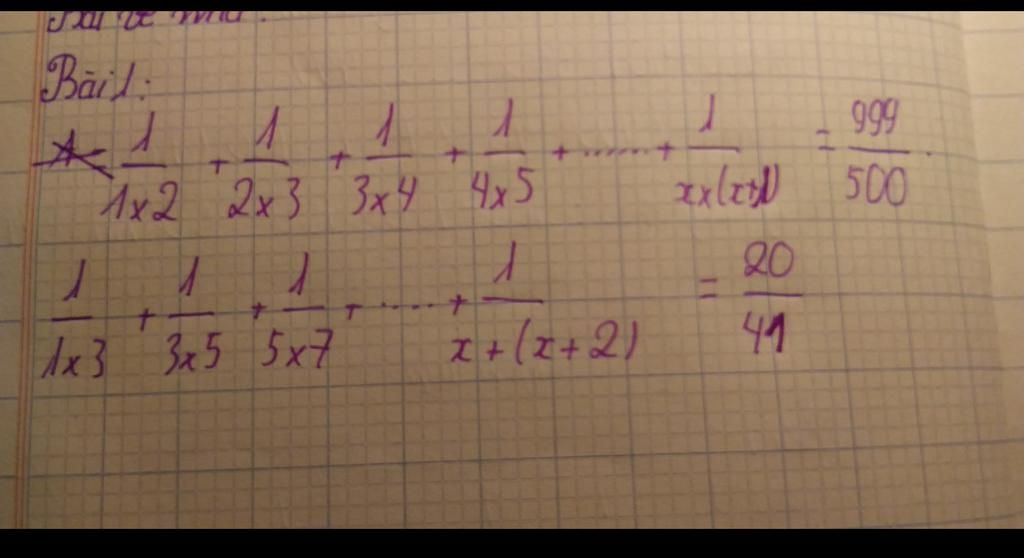 Bài 1:
1/1x2 + 1/2x3 + 1/3x4 + 1/4x5 + ...... + 1/x x (x+1) = 999/500.
1/1x3 + 1/3x5 + 1/5x7 + ..... + 1/x + (x + 2) = 20/41